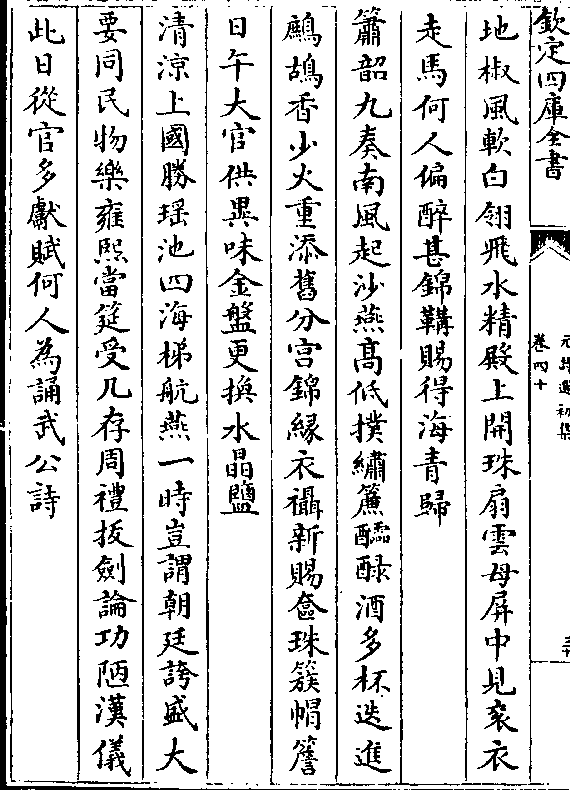 欽定四庫全書
元詩選初集
卷四十
地椒風軟白翎飛水精殿上開珠扇雲母屏中見衮衣
走馬何人偏醉甚錦鞲賜得海青歸
簫韶九奏南風起沙燕髙低撲繡簾醽醁酒多杯迭進
鷓鴣香少火重添舊分宫錦縁衣襵新賜奩珠簇帽簷
日午大官供異味金盤更換水晶鹽
清涼上國勝瑶池四海梯航燕一時豈謂朝廷誇盛大
要同民物樂雍熙當筵受几存周禮拔劍論功陋漢儀
此日從官多獻賦何人為誦武公詩